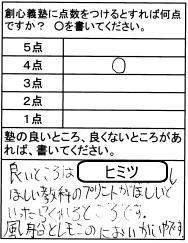 創心義塾に点数をつけるとすれば何点
ですか？ ○を書いてください。
5点
4点 ○
3点
2点
1点
塾の良いところ、良くないところがあ
れば、書いてください。
良いところは ヒミツ し
ほしい教科のプリントがほしいと
いったらくれるところです。
風呂とレモンのにおいがいやです